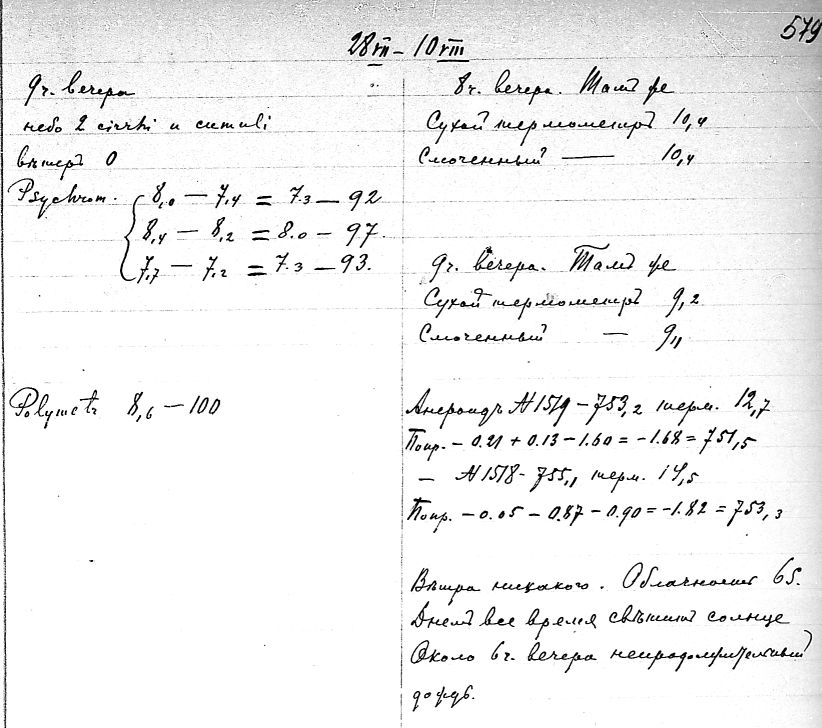 579
28 VII – 10 VIII
9 ч. вечера
небо 2 cirrhi и cumuli
вѣтеръ 0
Psychrom. 8,0 — 7,4 = 7.3 — 92
8,4 — 8,2 = 8.0 — 97.
7,7 — 7,2 = 7.3 — 93.
Polymetr 8,6 — 100
8 ч. вечера. Тамъ же
Сухой термометръ 10,4
Смоченный — 10,4
9 ч. вечера. Тамъ же
Сухой термометръ 9,2
Смоченный — 9,1
Анероидъ № 1519 — 753,2 терм. 12,7
Попр. — 0.21 + 0.13 — 1.60 = — 1.68 = 751,5
— № 1518 — 755,1 терм. 14,5
Попр. — 0.05 — 0.87 — 0.90 = — 1.82 = 753,3
Вѣтра никакого. Облачность 6S.
Днемъ все время свѣтитъ солнце
Около 6 ч. вечера непродолжительный
дождь.